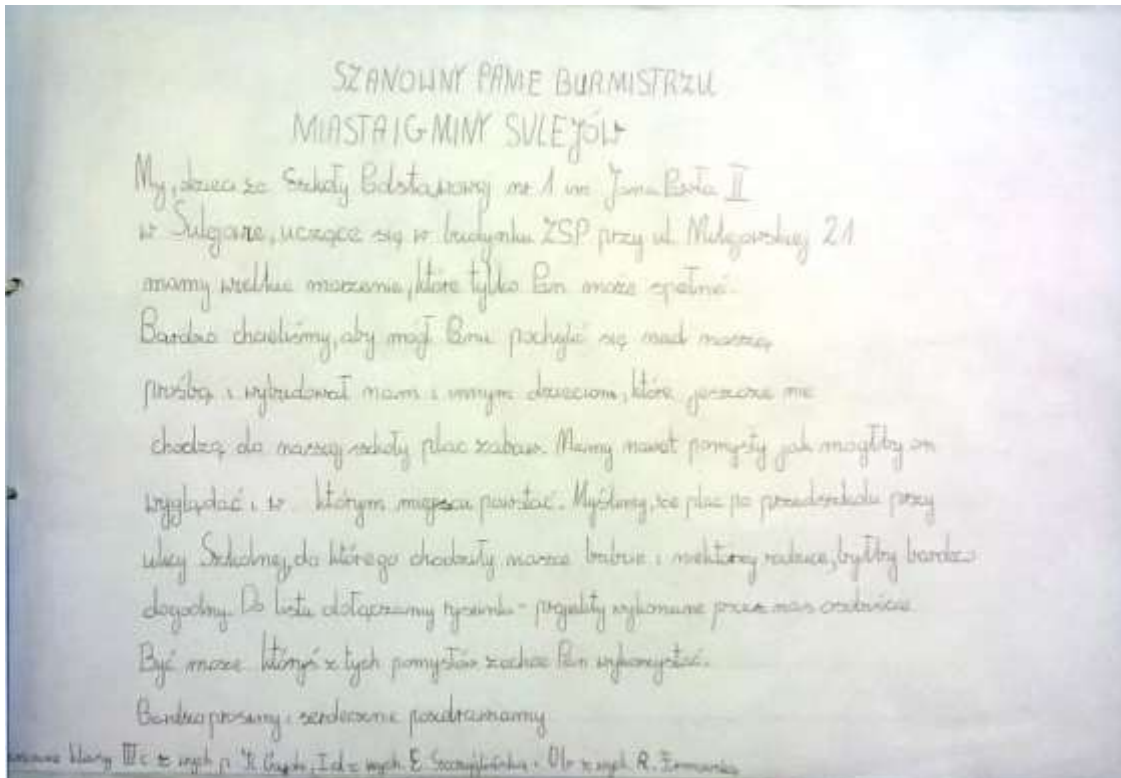 SZANOWNY PANIE BURMISTRZU
MIASTA I GMINY SULEJÓW
My, dzieci ze Szkoły Podstawowej nr 1 im. Jana Pawła II
w Sulejowie, uczące się w budynku ZSP przy ul. Milejowskiej 21
mamy wielkie marzenie, które tylko Pan może spełnić.
Bardzo chcieliśmy, aby mógł Panu pochylić się nad naszą
prośbą i wybudował nam i innym dzieciom, które jeszcze nie
chodzą do naszej szkoły plac zabaw. Mamy nawet pomysły jak mógłby on
wyglądać i w którym miejscu powstać. Myślimy, że plac po przedszkolu przy
ulicy Szkolnej, do którego chodziły nasze babcie i niektórzy rodzice, byłby bardzo
dogodny. Do listu dołączamy rysunki - projekty wykonane przez nas osobiście.
Być może któryś z tych pomysłów zechce Pan wykorzystać.
Bardzo prosimy i serdecznie pozdrawiamy
klasy III c z wych. p. K. I d z wych. E. i O b z wych. R.